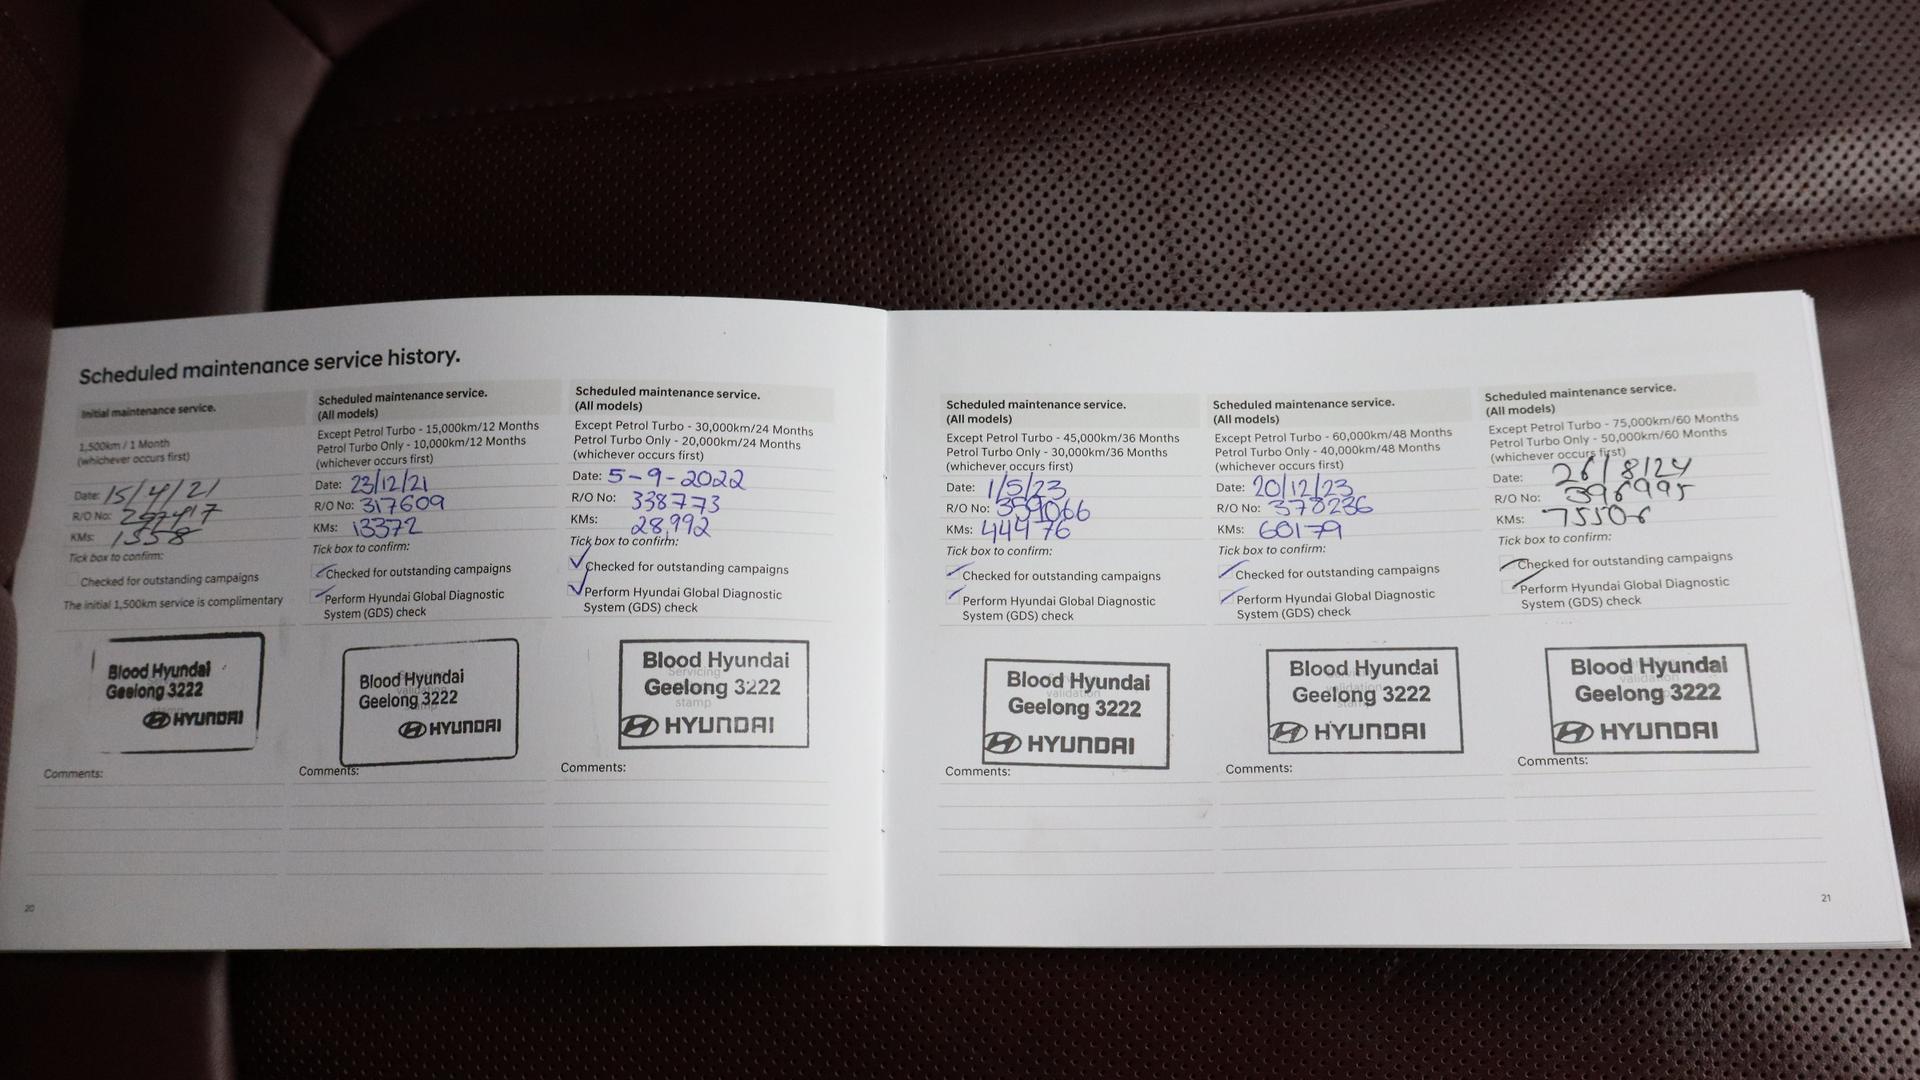 Scheduled maintenance service history.
Initial maintenance service.
1,500km / 1 Month
(whichever occurs first)
Date: 15/4/21
R/O No:
KMs: 1558
Tick box to confirm:
Checked for outstanding campaigns
The initial 1,500km service is complimentary
Blood Hyundai
Geelong 3222
stamp
HYUNDAI
Comments:
20
Scheduled maintenance service.
(All models)
Except Petrol Turbo - 15,000km/12 Months
Petrol Turbo Only - 10,000km/12 Months
(whichever occurs first)
Date: 23/12/21
R/O No: 317609
KMs: 13372
Tick box to confirm:
Checked for outstanding campaigns
Perform Hyundai Global Diagnostic
System (GDS) check
Blood Hyundai
Geelong 3222
HYUNDAI
Comments:
Scheduled maintenance service.
(All models)
Except Petrol Turbo - 30,000km/24 Months
Petrol Turbo Only - 20,000km/24 Months
(whichever occurs first)
Date: 5-9-2022
R/O No: 338773
KMs: 28,992
Tick box to confirm:
Checked for outstanding campaigns
Perform Hyundai Global Diagnostic
System (GDS) check
Blood Hyundai
Servicing
Geelong 3222
stamp
HYUNDAI
Comments:
Scheduled maintenance service.
(All models)
Except Petrol Turbo - 45,000km/36 Months
Petrol Turbo Only - 30,000km/36 Months
(whichever occurs first)
Date: 1/5/23
R/O No: 359066
KMs: 44476
Tick box to confirm:
Checked for outstanding campaigns
Perform Hyundai Global Diagnostic
System (GDS) check
Blood Hyundai
validation
Geelong 3222
HYUNDAI
Comments:
Scheduled maintenance service.
(All models)
Except Petrol Turbo - 60,000km/48 Months
Petrol Turbo Only - 40,000km/48 Months
(whichever occurs first)
Date: 20/12/23
R/O No: 378236
KMs: 60179
Tick box to confirm:
Checked for outstanding campaigns
Perform Hyundai Global Diagnostic
System (GDS) check
Blood Hyundai
Geelong 3222
HYUNDAI
Comments:
Scheduled maintenance service.
(All models)
Except Petrol Turbo - 75,000km/60 Months
Petrol Turbo Only - 50,000km/60 Months
(whichever occurs first)
Date: 26/8/24
R/O No: 396995
KMs: 75506
Tick box to confirm:
Checked for outstanding campaigns
Perform Hyundai Global Diagnostic
System (GDS) check
Blood Hyundai
validation
Geelong 3222
HYUNDAI
Comments:
21